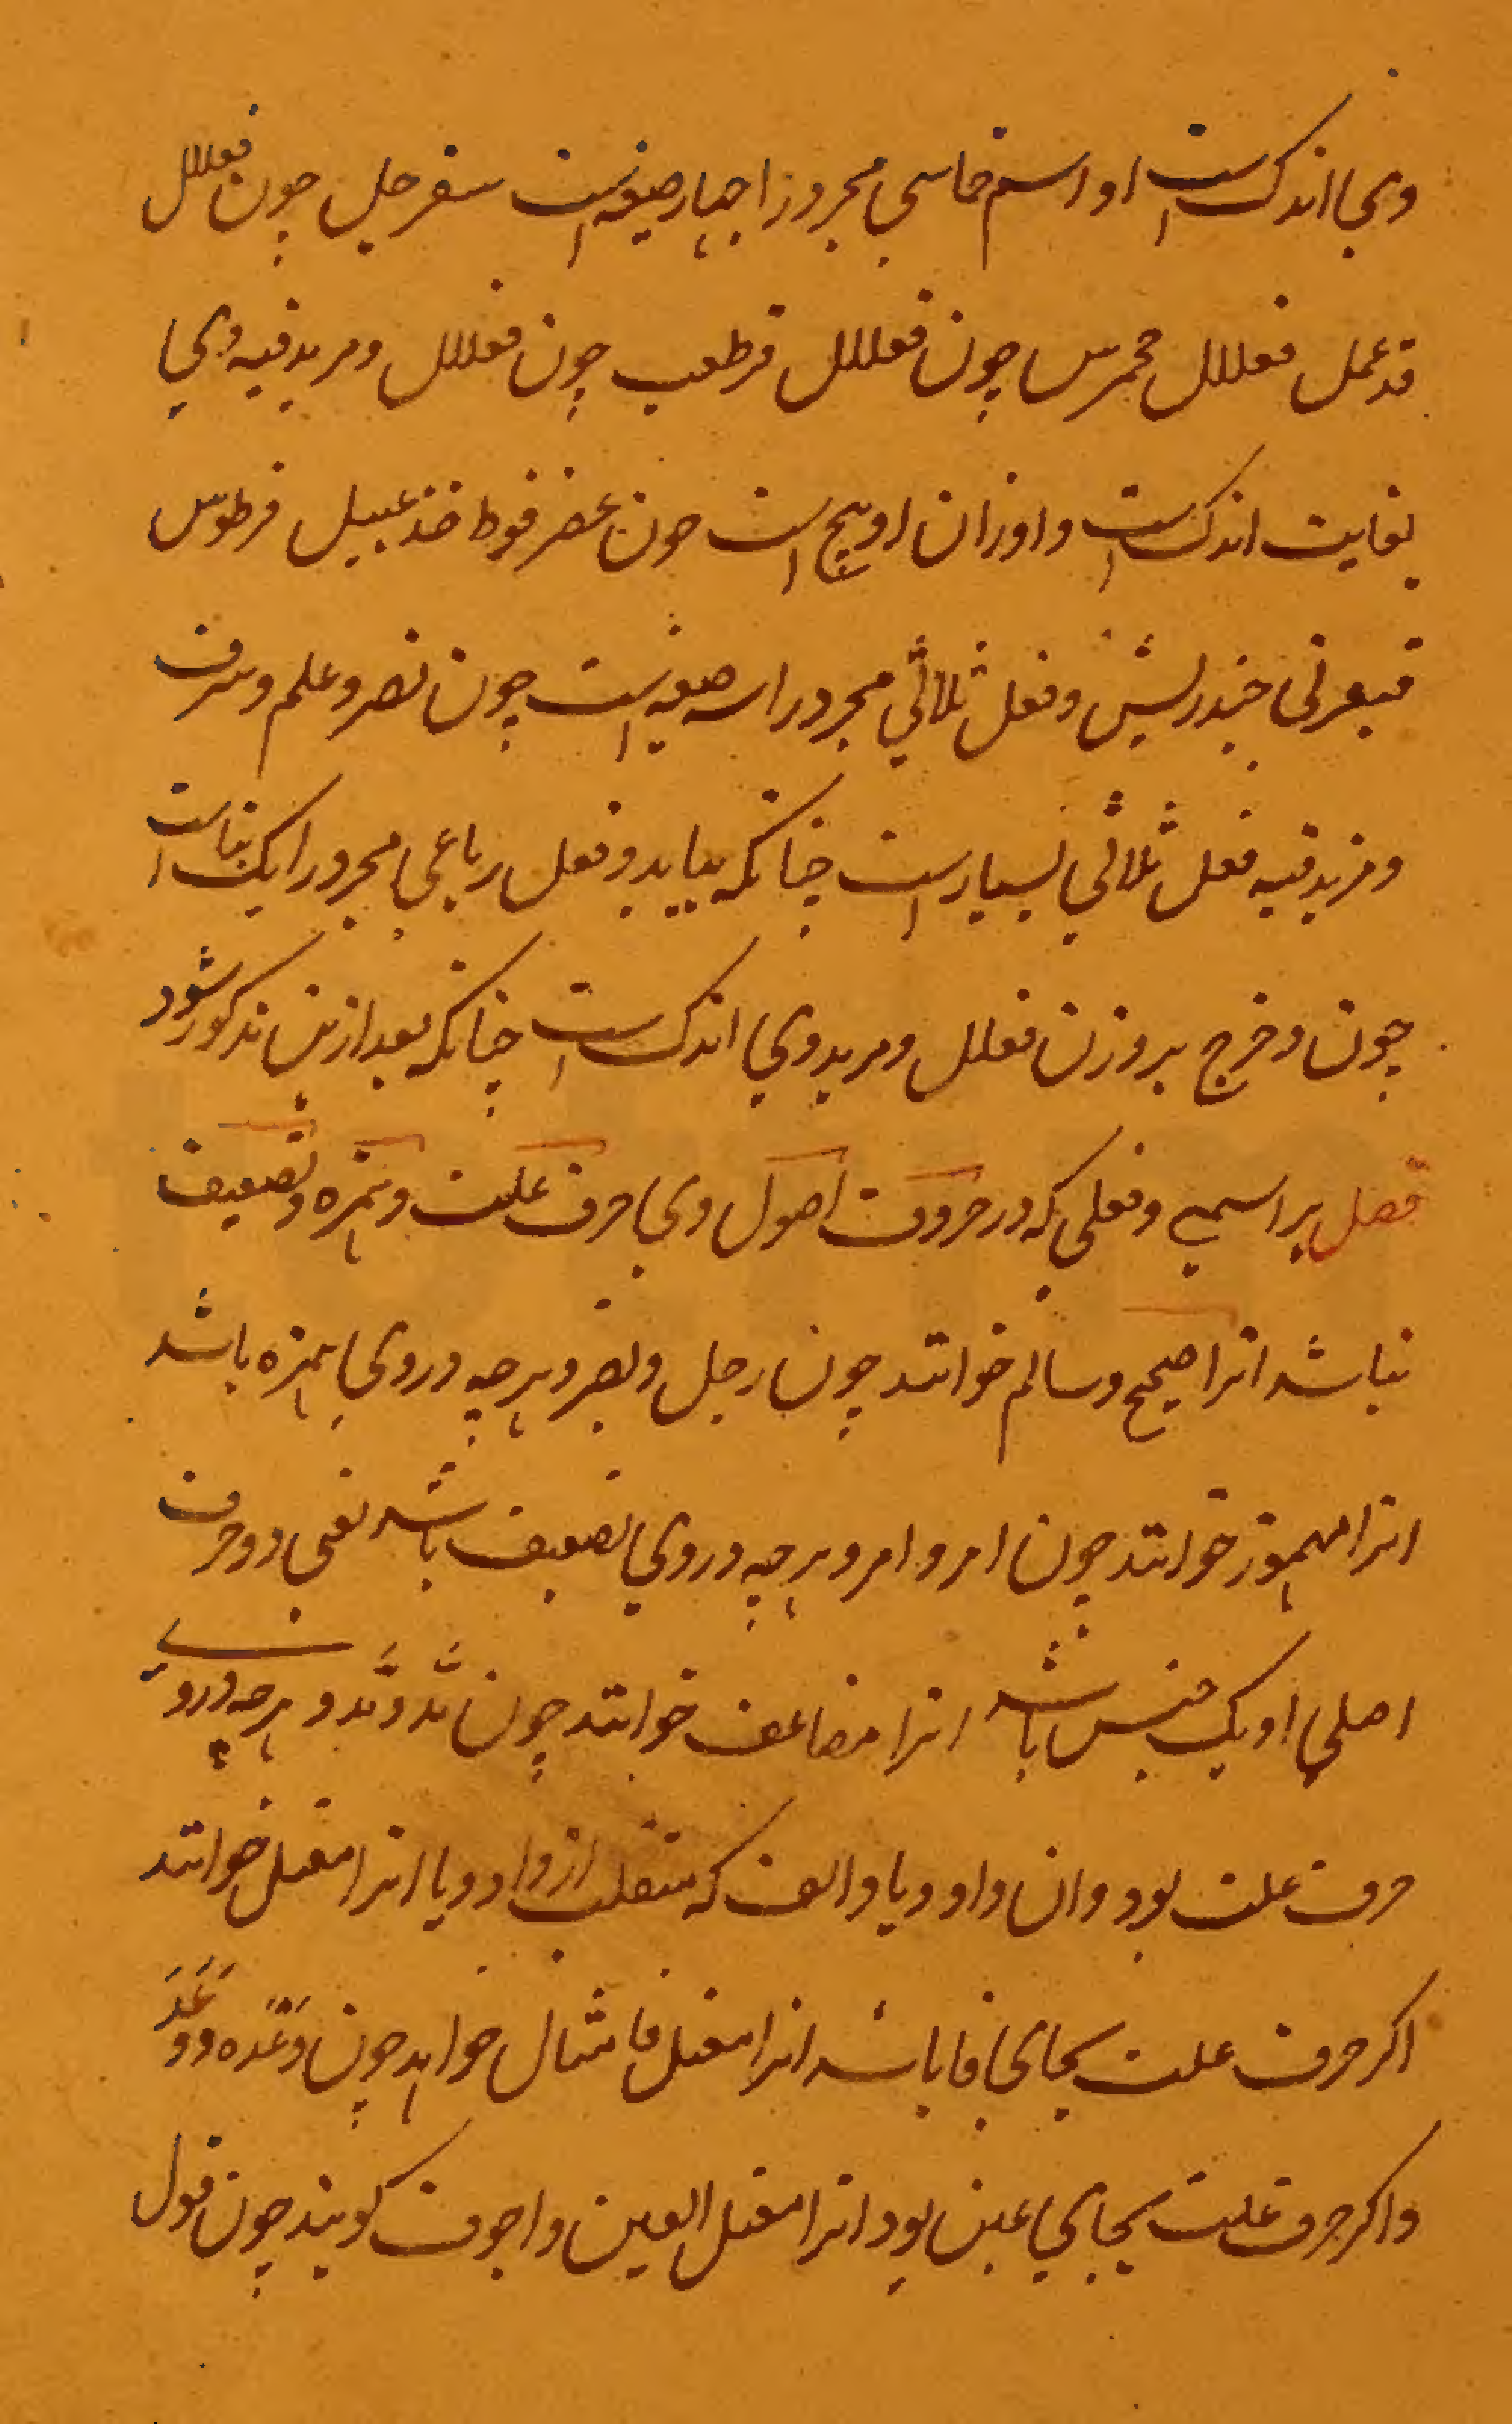 وی اندکست او اسم خماسی مجرد را چهار صیغه است سفرجل چون فعلل
قدعمل فعلل جحمرش چون فعلل قرطعب چون فعلل و مزید فیه وی
بغایت اندکست و اوزان او پنج است چون عضرفوط خذعبیل قرطوس
قبعثری خندریس و فعل ثلاثی مجرد را سه صیغه است چون نصر و علم و شرف
و مزید فیه فعل ثلاثی بسیار است چنانکه بیاید و فعل رباعی مجرد را یک بناست
چون دخرج بروزن فعلل و مزید وی اندکست چنانکه بعد ازین مذکور شود
فصل بر اسمی و فعلی که در حروف اصول وی حرف علت و همزه و تضعیف
نباشد انرا صحیح و سالم خوانند چون رجل و نصر و هرچه در وی همزه باشد
انرا مهموز خوانند چون امر و امر و هرچه در وی تضعیف باشد یعنی دو حرف
اصلی او یک جنس باشد انرا مضاعف خوانند چون مَدّ و مَدّ و هرچه در وی
حرف علت بود وان واو و یا و الف که منقلب از واو و یا انرا معتل خوانند
اکر حرف علت بجای فا باشد انرا معتل فا مثال خواهند چون وَعْده و وَعَدَ
و اکر حرف علت بجای عین بود انرا معتل العین و اجوف کویند چون قول